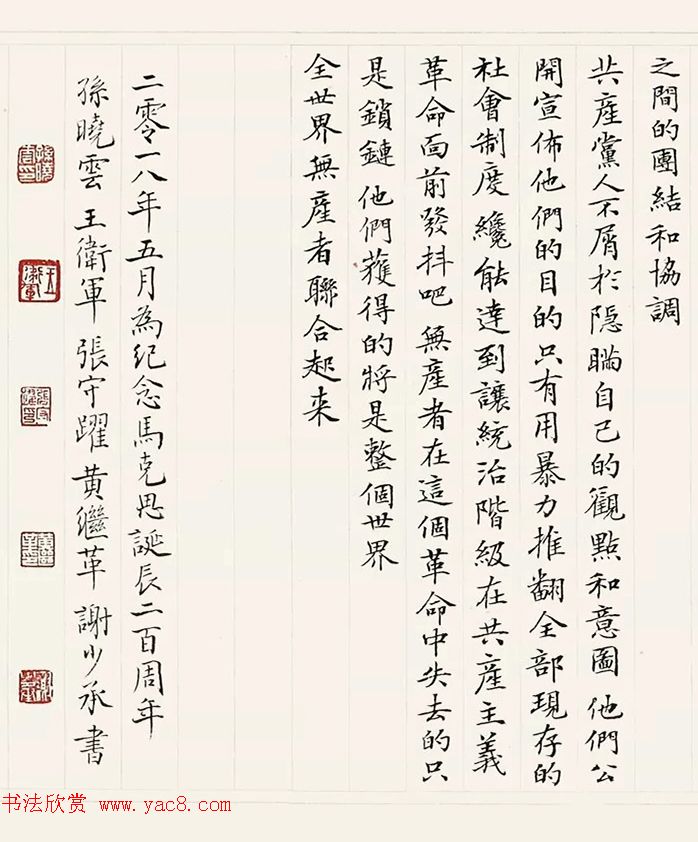 之間的團結和協調
共産黨人不屑於隱瞞自己的觀點和意圖 他們公
開宣佈他們的目的只有用暴力推翻全部現存的
社會制度 纔能達到讓統治階級在共産主義
革命面前發抖吧 無産者在這個革命中失去的只
是鎖鏈 他們獲得的將是整個世界
全世界無産者聯合起来
二零一八年五月為紀念馬克思誕辰二百周年
孫曉雲 王衛軍 張守躍 黄繼革 謝少承書
书法欣赏 www.yac8.com